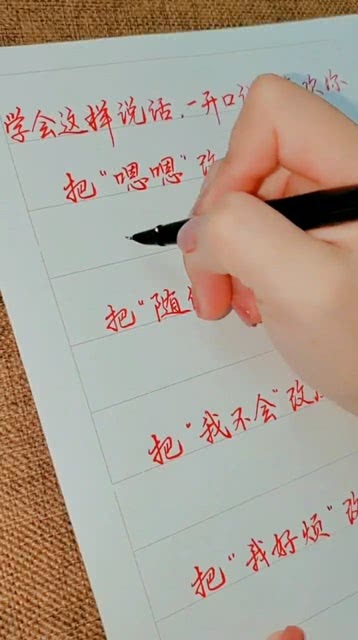 学会这样说话.一开口 欢你
把“嗯嗯”改
把“随
把“我不会”改
把“我好烦”改